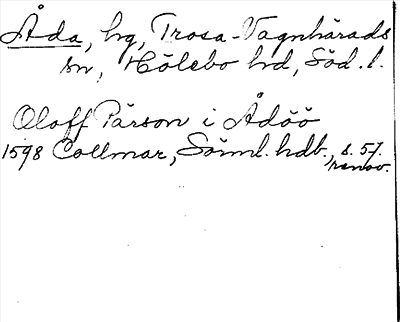 Åda, hg, Trosa-Vagnhärads
sn, Hölebo hd, Söd. l.
Oloff Pärson i Ådöö
1598 Collmar, Sörml. hdb., s. 57.
renov.